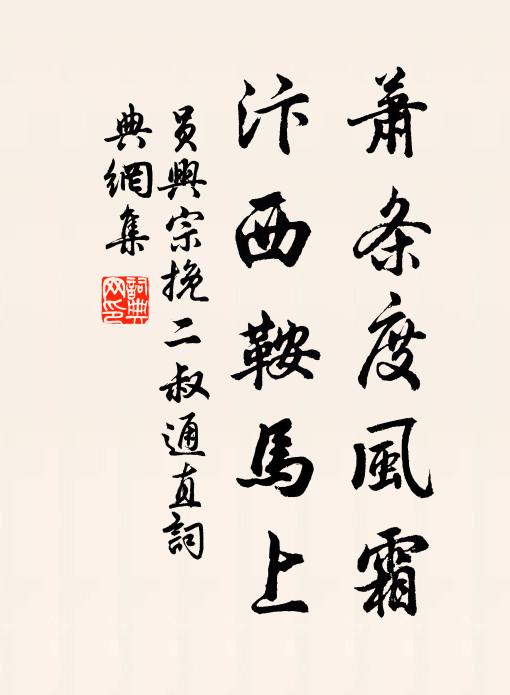 萧条度風霜
汴西鞍馬上
員興宗挽二叔通直詞
典網集
詞典网印